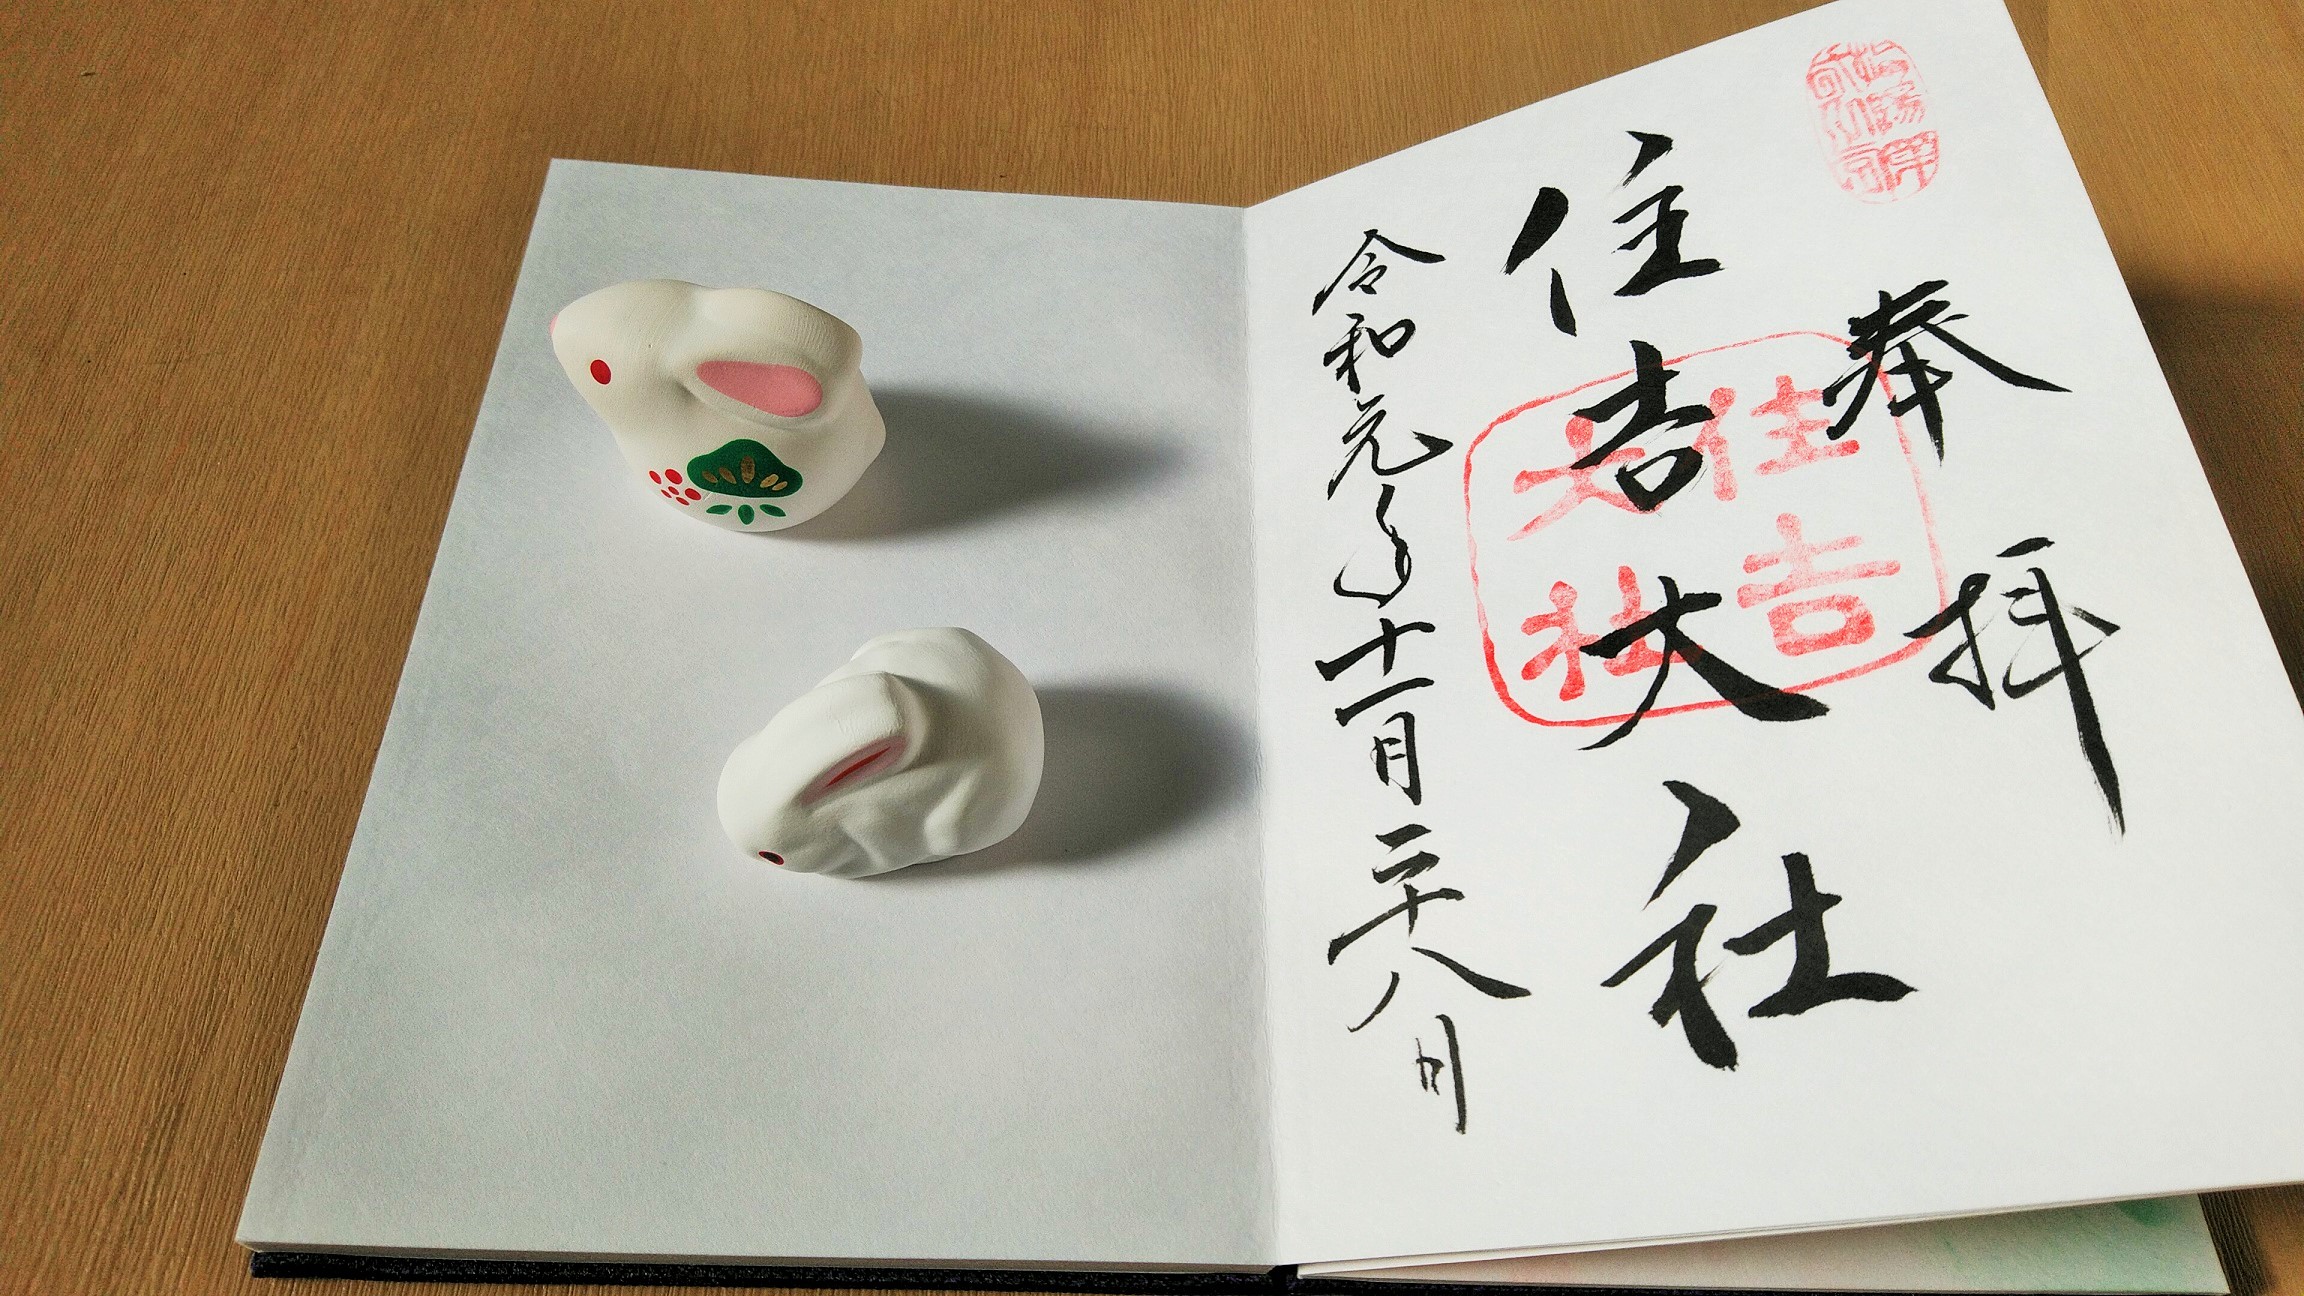 奉拝
住吉大社
令和元年十一月二十八日
住吉
大社